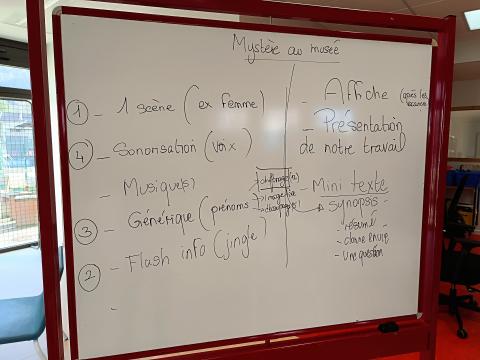 Mystère au musée
① - 1 scène (ex femme)
④ - Sonorisation (voix)
- Musique(s)
③ - Générique (prénoms)
② - Flash info (jingle)
-
- Affiche (après les vacances
- Présentation
de notre travail
Mini texte
synopsis
- résumé
- donne envie
- une question